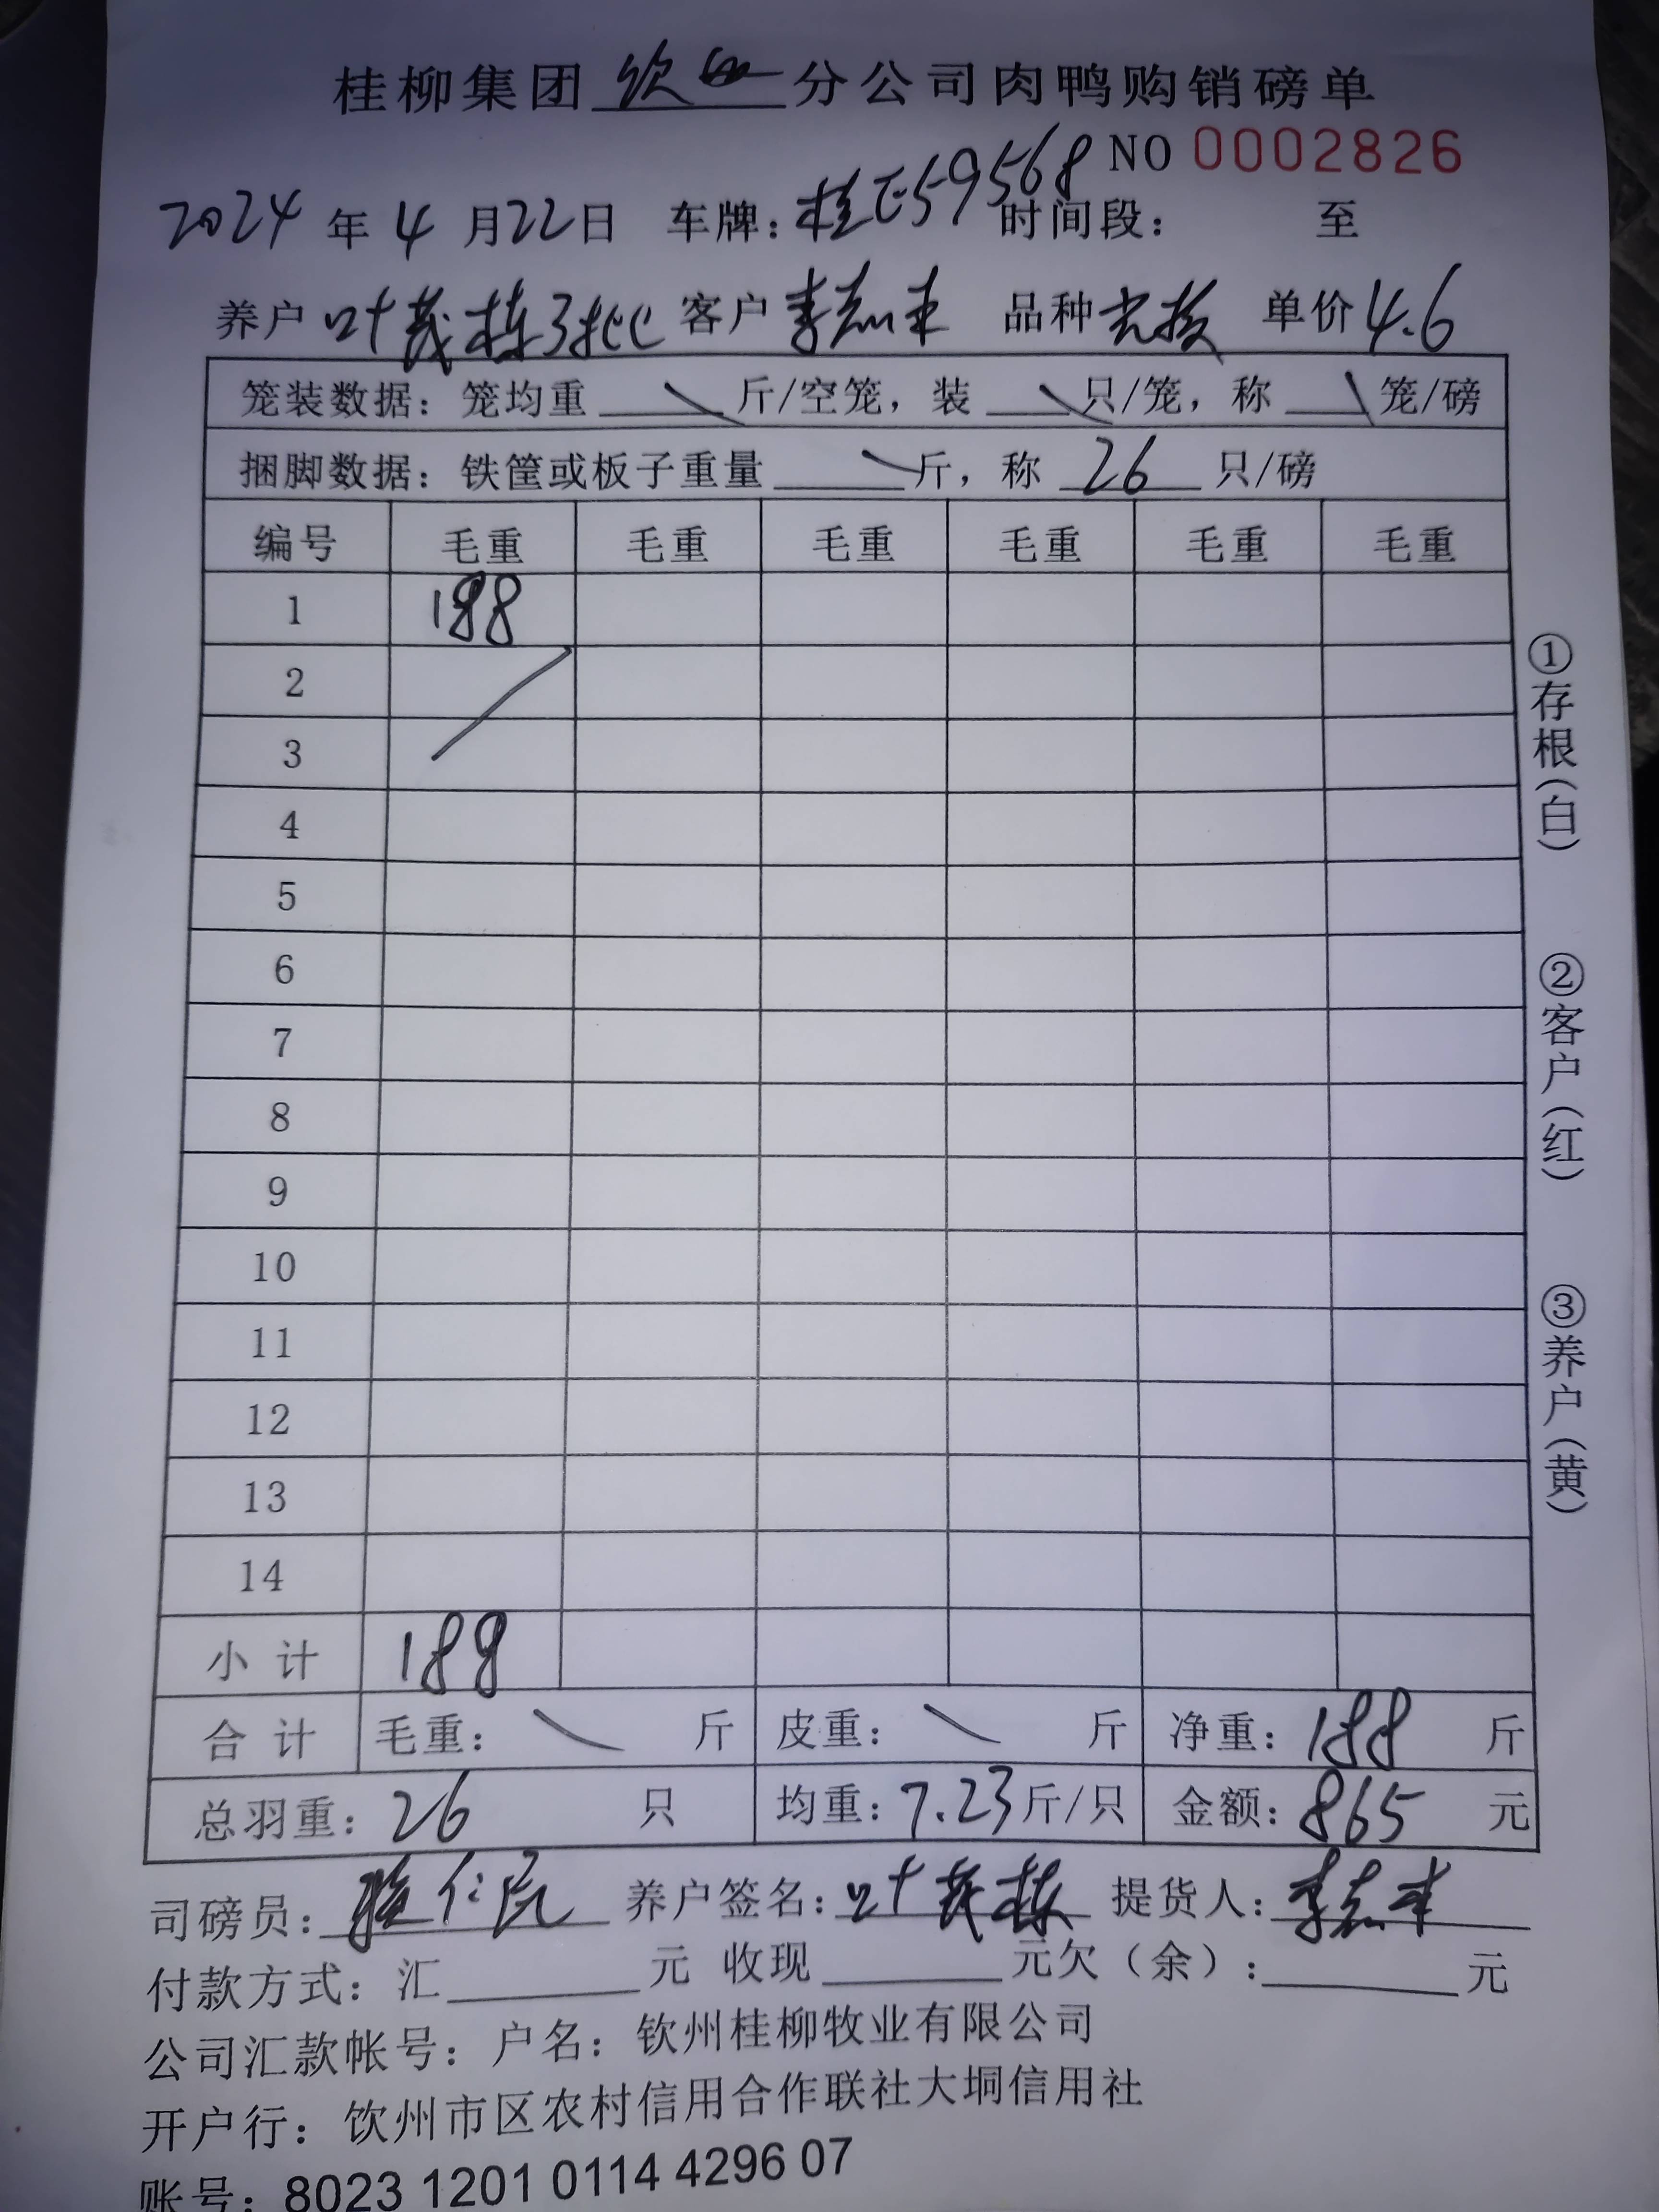 桂柳集团 钦州 分公司肉鸭购销磅单
NO 0002826
2024 年 4 月 22 日 车牌：桂E59568 时间段： 至
养户 叶茂栋3批 客户 李志丰 品种 单价 4.6
笼装数据：笼均重 \ 斤/空笼，装 \ 只/笼，称 \ 笼/磅
捆脚数据：铁筐或板子重量 \ 斤，称 26 只/磅
编号 毛重 毛重 毛重 毛重 毛重 毛重
1 188
2
3
4
5
6
7
8
9
10
11
12
13
14
小计 188
合计 毛重：\ 斤 皮重：\ 斤 净重：188 斤
总羽重：26 只 均重：7.23 斤/只 金额：865 元
司磅员： 养户签名：叶茂栋 提货人：李志丰
付款方式：汇 元 收现 元欠（余）： 元
公司汇款帐号：户名：钦州桂柳牧业有限公司
开户行：钦州市区农村信用合作联社大垌信用社
账号：8023 1201 0114 4296 07
①存根（白）
②客户（红）
③养户（黄）